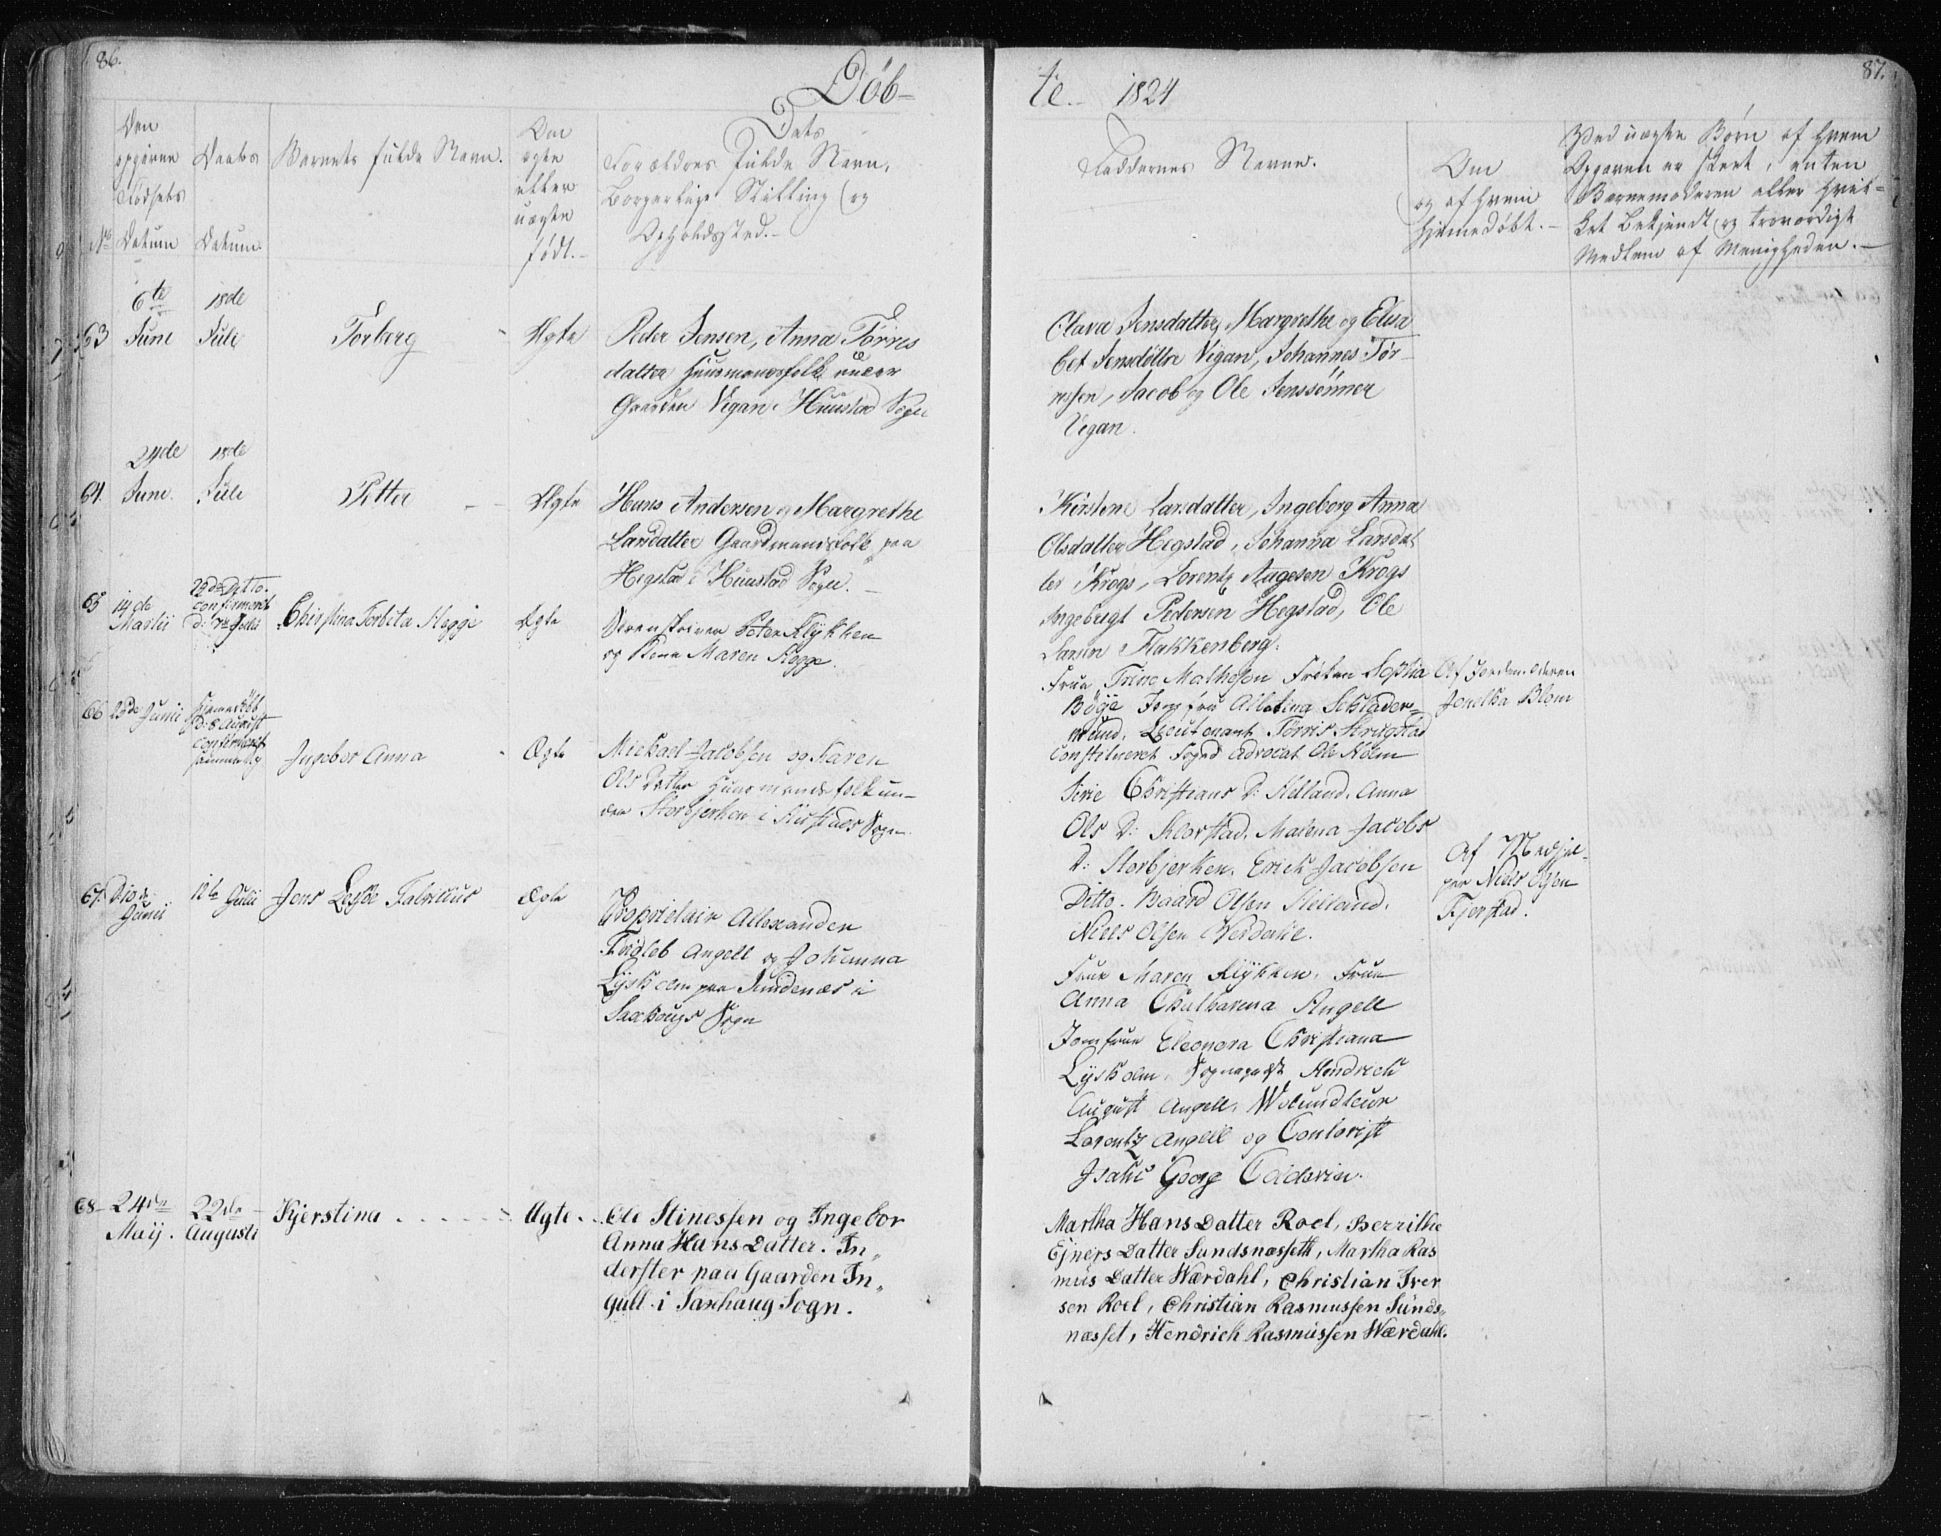 86.
Döb-
te. 1824
87.
Den opgivne Födsels Datum
No
Daabs Datum
Barnets fulde Navn.
Om ægte eller uægte födt.
Dets Forældres fulde Navn, Borgerlige Stilling og Opholdssted.
Faddernes Navne.
Om og af hvem hjemmedöbt.
Ved uægte Börn af hvem Opgaven er skeet, enten Barnemoderen eller hvilket bekjendt og troværdigt Medlem af Menigheden.
63
6te
Juni
18de
Juli
Torberg
Ægte
Peder Jensen, Anna Törris
datter Huusmandsfolk under
Gaarden Vigan i Huustad Sogn
Clara Jensdatter, Margrethe og Elisa
bet Jensdöttre Vigan, Johannes Tör-
rissen, Jacob og Ole Jenssönner
Vigan.
64.
24de
Juni.
18de
Juli
Petter
Ægte
Hans Andersen og Margrethe
Larsdatter Gaardmandsfolk paa
Hegstad i Huustad Sogn.
Kirstine Larsdatter, Ingeborg Anna
Olsdatter Hegstad, Johanna Larsdat
ter Krogs, Lorentz Aagesen Krogs
Ingebrigt Pedersen Hegstad, Ole
Larsen Flakkenberg.
65
14de
Martii
28de Ditto.
confirmeret
Christina Torbeta Hegge
Ægte
Sorenskriver Peter Klÿkken
og Kone Maren Hegge.
Frue Trine Malhesen Fröken Sophia
Böÿe Jomfru Alletina Schlader-
mund, Lieutenant Törris Krugstad
Constitueret Foged advocat Ole Holm
Af Jordemoderen
Jenetka Blom
66
25de Junii
hjemmedöbt
D: 8 August
confirmeret
Ingebor Anna
Ægte
Mickael Jacobsen og Karen
Ols Datter Huusmandsfolk un-
der Storbjerken i Hustads Sogn
Sirie Christians D: Helland. Anna
Ols D: Klorstad. Malena Jacobs
D: Storbjerken. Erick Jacobsen
Ditto. Baard Olsen Helland.
Niels Olsen Verdahl.
Af Medhjel-
per Niels Olsen
Fjerstad.
67.
D 10de
Junii
12te Julii
Jens Lysk Fabricius
Ægte
Proprietair Allexander
Fridleb Angell og Johanna
Lÿsholm paa Sundenæs i
Saxhougs Sogn
Frue Maren Klÿkken, Frue
Anna Chatharina Angell
Jomfrue Eleonora Christiana
Lÿsholm, Sognepræst Hendrich
August Angell,
Lorentz Angell og Contorist
Isahc Georg Coldevin.
68
24de
Maij.
22de
Augusti
Kjerstina
Ægte.
Ole Stinessen og Ingebor
Anna Hans Datter. In„
derster paa Gaarden In„
gull i Saxhaug Sogn.
Martha Hans Datter Roel, Berrithe
Ejners Datter Sundsnæsseth, Martha Ras
mus Datter Wærdahl, Christian Iver
sen Roel, Christian Rasmussen Sünds„
næsset, Hendrich Rasmüssen Wærdahl.